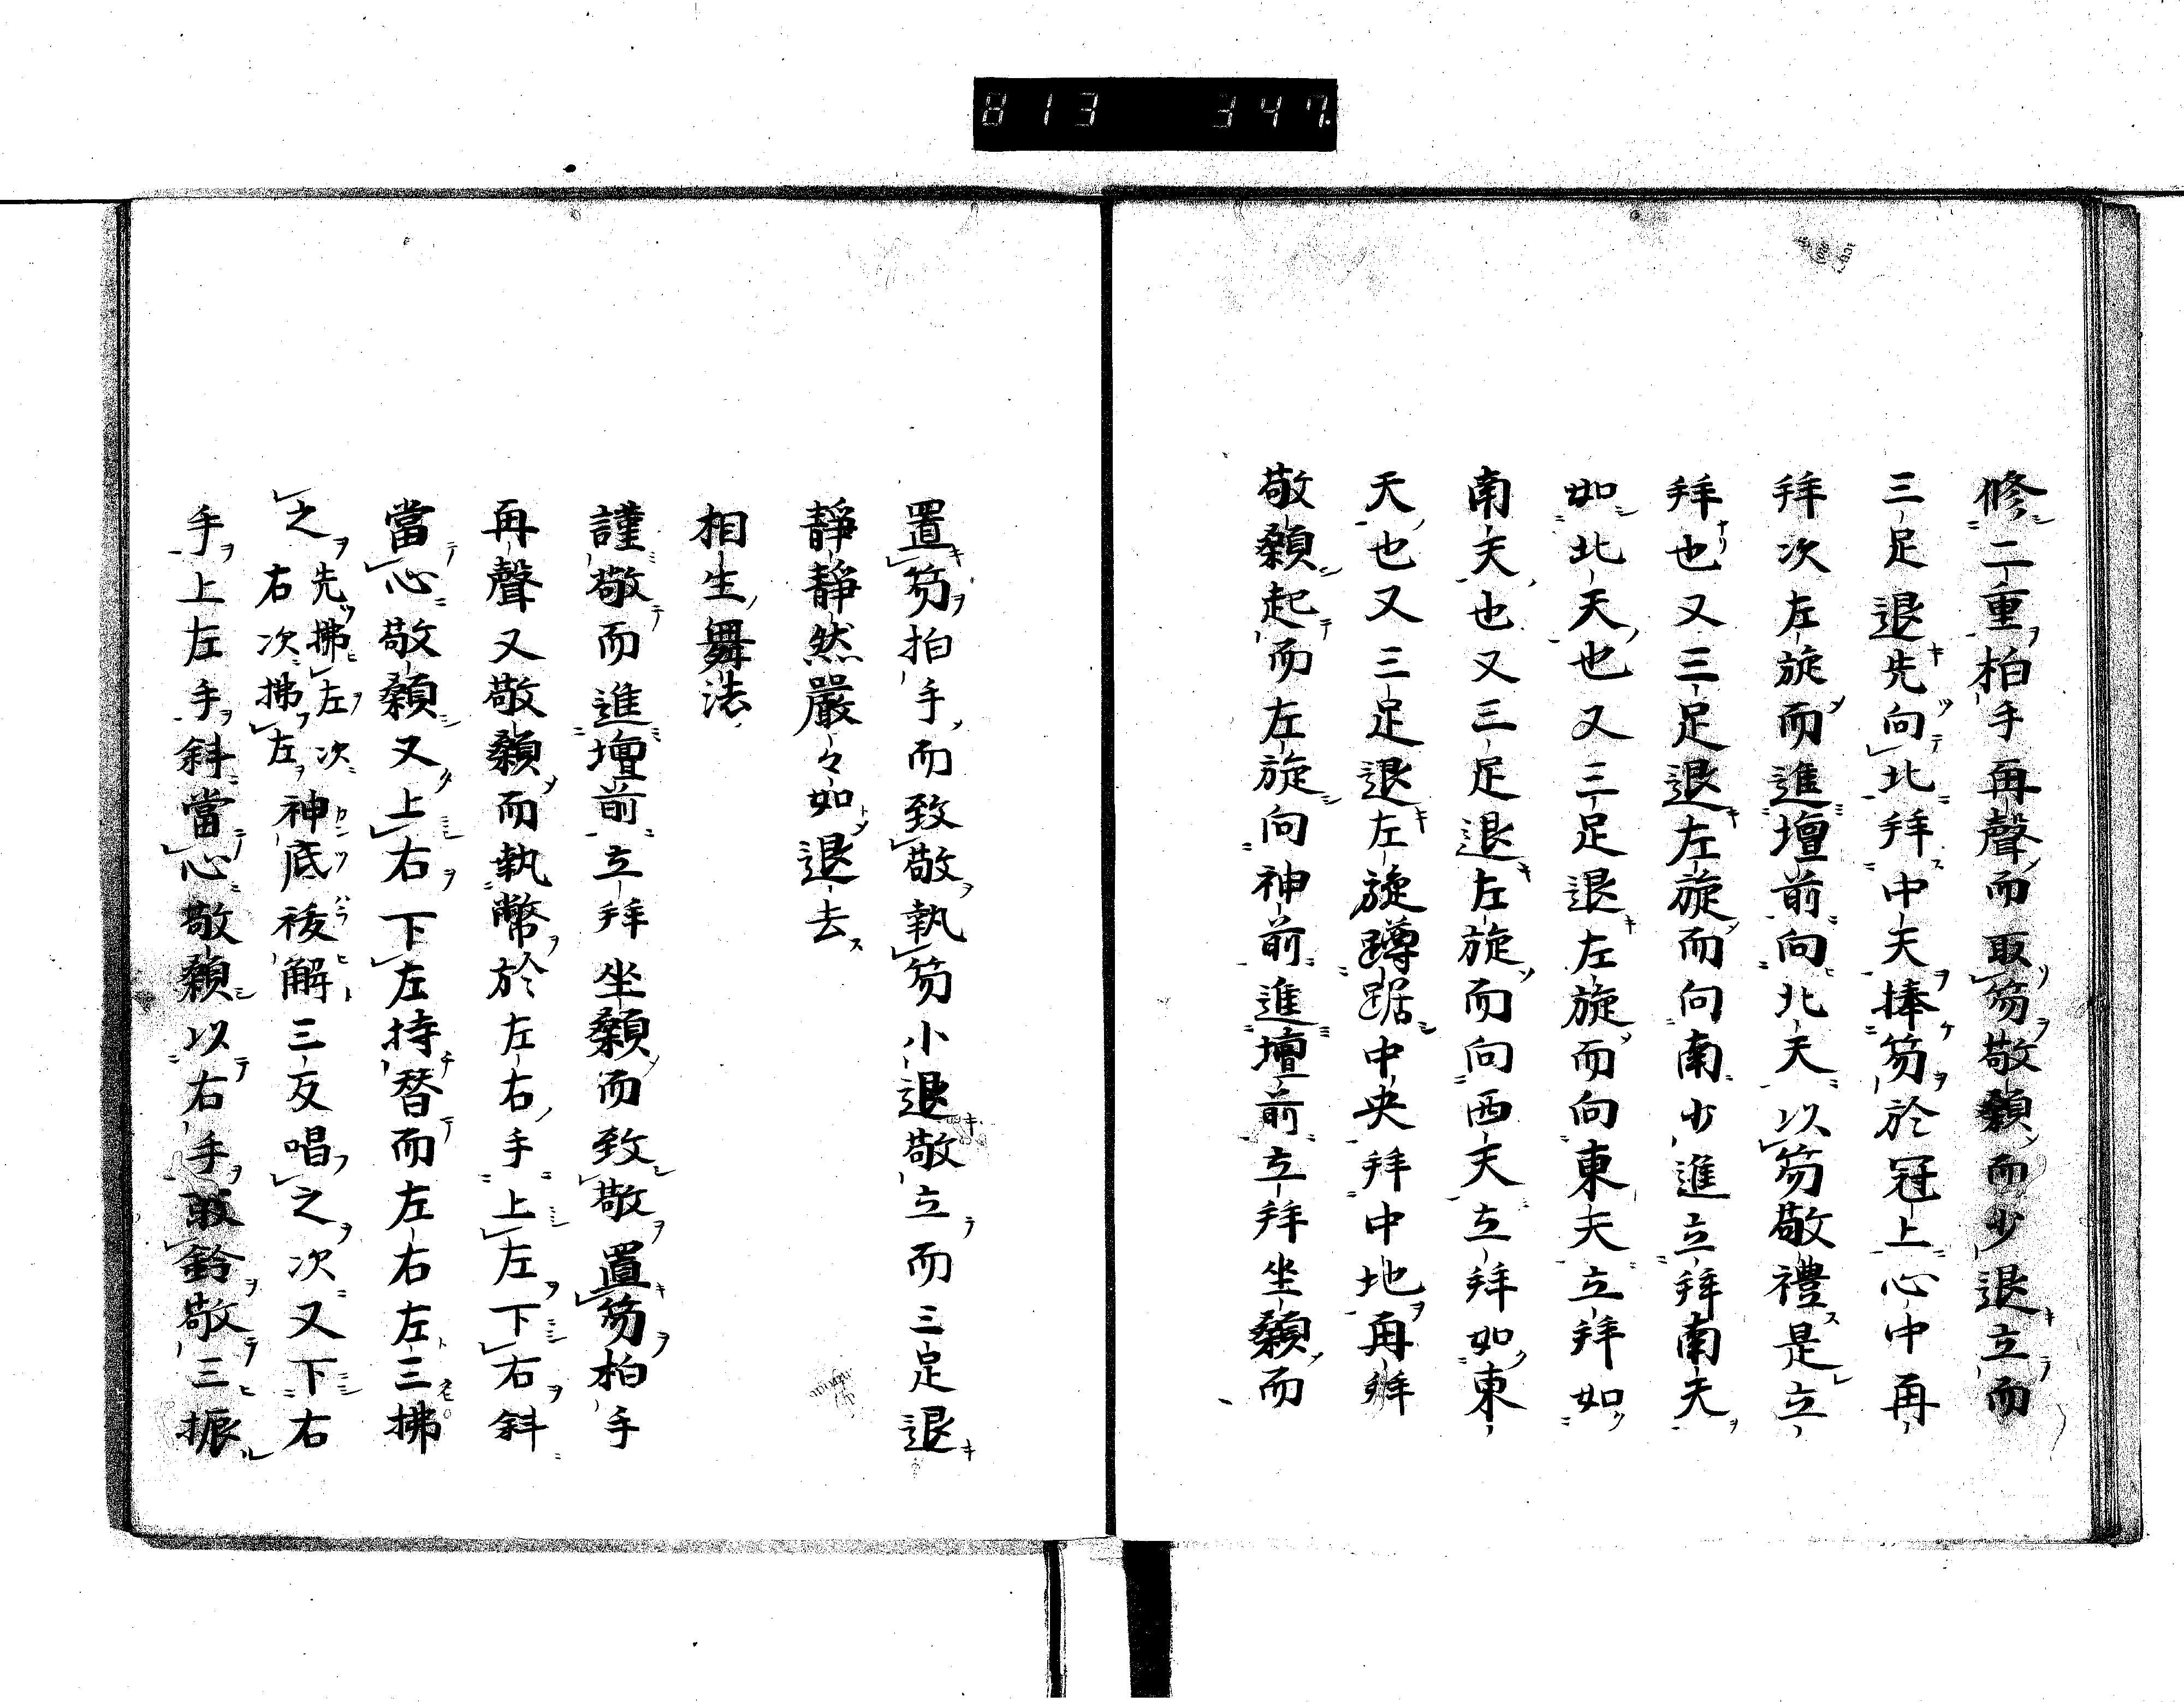 813 347
修二重拍手再聲而取笏敬顙而少退立而
三足退先向北拜中天捧笏於冠上心中再
拜次左旋而進壇前向北天以笏敬禮是立
拜也又三足退左旋而向南少進立拜南天
如北天也又三足退左旋而向東天立拜如
南天也又三足退左旋而向西天立拜如東
天也又三足退左旋蹲踞中央拜中地再拜
敬顙起而左旋向神前進壇前立拜坐顙而
置笏拍手而致敬執笏小退敬立而三足退
靜靜然嚴々如退去
相生舞法
謹敬而進壇前立拜坐顙而致敬置笏拍手
再聲又敬顙而執幣於左右手上左下右斜
當心敬顙又上右下左持替而左右左三拂
之先拂左次右次拂左神底祓解三反唱之次又下右
手上左手斜當心敬顙以右手取鈴敬三振